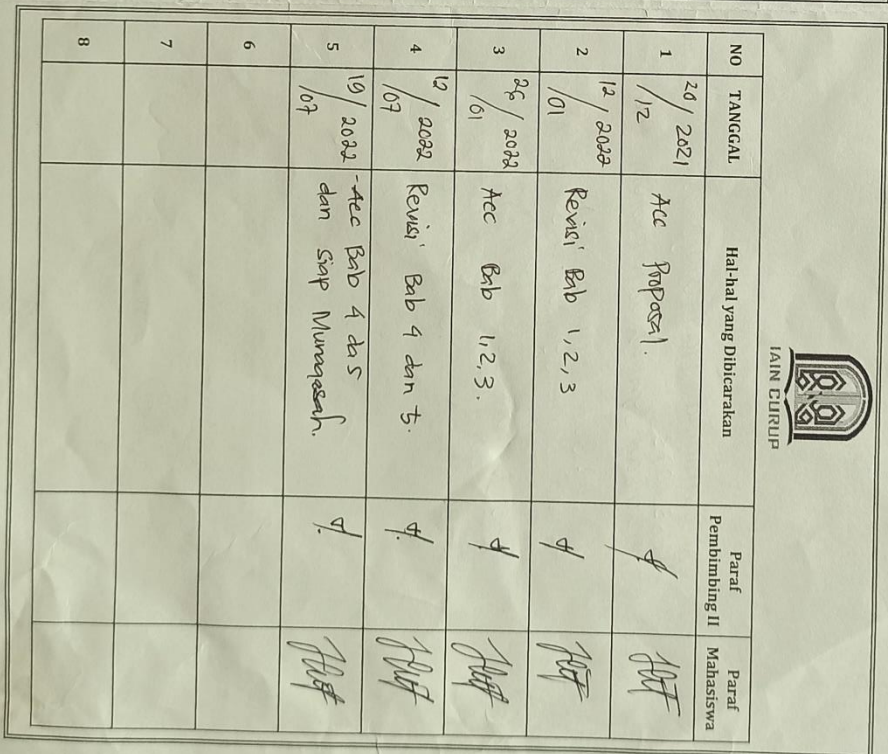 IAIN CURUP
NO TANGGAL Hal-hal yang Dibicarakan Paraf Pembimbing II Paraf Mahasiswa
1 20/12 2021 Acc Proposal.
2 12/01 2022 Revisi Bab 1, 2, 3
3 26/01 2022 Acc Bab 1, 2, 3.
4 12/07 2022 Revisi Bab 4 dan 5.
5 19/07 2022 - Acc Bab 4 da 5
dan siap Munaqasah.
6
7
8